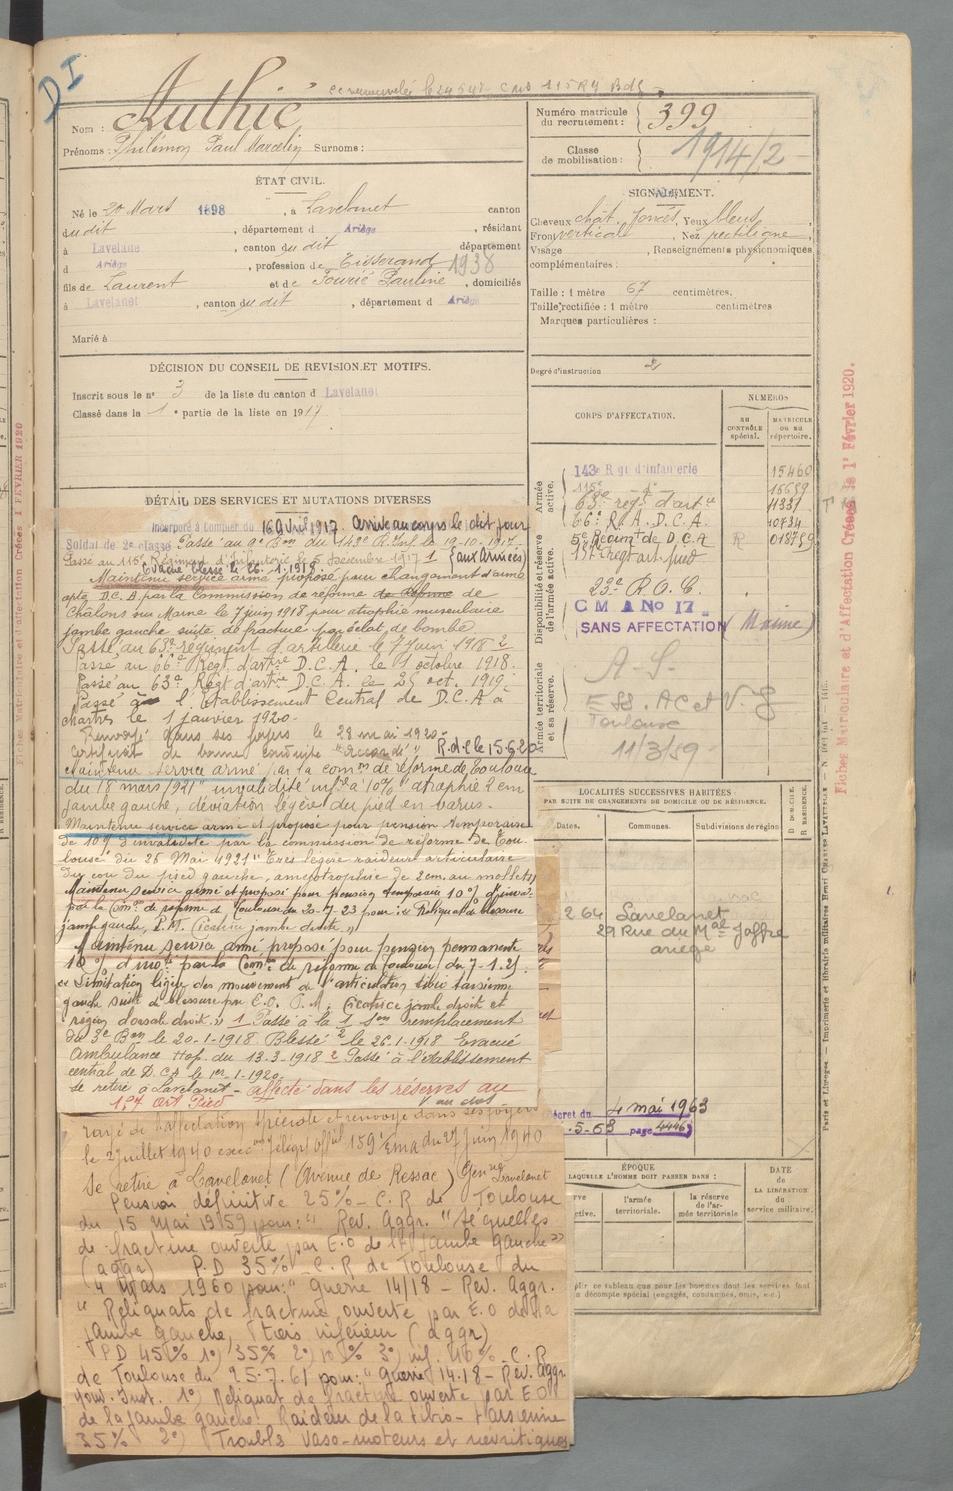 DI
Authié
Nom :
Prénoms : Philémon Paul Marcelin Surnoms :
Numéro matricule du recrutement : 399
Classe de mobilisation : 1914/2
ÉTAT CIVIL.
Né le 20 Mars 1898, à Lavelanet canton
dudit, département d Ariège, résidant
à Lavelane, canton dudit département
d Ariège, profession de Tisserand 1938
fils de Laurent et de Fourié Pauline, domiciliés
à Lavelanet, canton dudit, département d Ariège
Marié à
SIGNALEMENT.
Cheveux chât. foncés, Yeux bleus,
Front verticale, Nez rectiligne,
Visage , Renseignements physionomiques
complémentaires :
Taille : 1 mètre 67 centimètres.
Taille rectifiée : 1 mètre centimètres
Marques particulières :
Degré d'instruction 2
DÉCISION DU CONSEIL DE REVISION ET MOTIFS.
Inscrit sous le n° 3 de la liste du canton d Lavelanet
Classé dans la 1e partie de la liste en 1917
CORPS D'AFFECTATION.
NUMÉROS
AU CONTRÔLE spécial.
MATRICULE OU AU répertoire.
Armée active.
143e Rgt d'Infanterie 15460
115e - d°
63e régt d'artie 11331
66e R.A.D.C.A. 10734
Disponibilité et réserve de l'armée active.
5e Régimt de D.C.A R 018759
23e R.O.C.
C M A No 17
SANS AFFECTATION (Marine)
Armée territoriale et sa réserve.
A-S-
Toulouse
11/3/39
DÉTAIL DES SERVICES ET MUTATIONS DIVERSES
Incorporé à compter du 16 Avril 1917. Arrivé au corps le dit jour
Soldat de 2e classe Passé au 9e Bon du 143e R. Inf. le 19-10-1917.
Passé au 115e Régiment d'Infanterie le 5 Décembre 1917 1 (aux Armées)
blessé le 26.1.1918.
Maintenu service armé proposé pour changement d'arme
apte D.C.A par la Commission de réforme de réforme de
Châlons sur Marne le 7 juin 1918 pour atrophie musculaire
jambe gauche suite de fracture par éclat de bombe
Passé au 63e régiment d'artillerie le 7 Juin 1918 2
Passé au 66e Regt d'artrie D.C.A. le 1 octobre 1918.
Passé au 63e Régt d'artie D.C.A. le 25 oct. 1919.
Passé à l'Etablissement Central de D.C.A à
Chartres le 1 janvier 1920-
Renvoyé dans ses foyers le 28 mai 1920-
Certificat de bonne conduite "accordé" R.d.C le 15.6.20
Maintenu service armé par la comon de réforme de Toulouse
du 18 mars 1921 " invalidité infre à 10% atrophie 2 cm
jambe gauche, déviation légère du pied en varus-
Maintenu service armé et proposé pour pension temporaire
de 10% d'invalidité par la commission de réforme de Tou-
louse du 25 Mai 1921 " Très légère raideur articulaire
du cou du pied gauche, amyotrophie de 2 cm. au mollet"
Maintenu service armé et proposé pour pension temporaire 10% d'inva-
par la Comon de réforme de Toulouse du 20-7-23 pour "Reliquat de blessure
jambe gauche, P.M. Cicatrice jambe droite"
Maintenu service armé proposé pour pension permanente
10% d'invté par la Comon de réforme de Toulouse du 7-1-25
"Limitation légère des mouvements de l'articulation tibio tarsienne
gauche suite de blessure par E.O. P.M. Cicatrice jambe droite et
région dorsale droite." 1 Passé à la 1
du 3e Bon le 20-1-1918 Blessé 2 le 26.1.1918 Evacué
Ambulance Hop. du 13-3-1918 2 Passé à l'établissement
central de D.C.A le 1er-1-1920
Se retire à Lavelanet- affecté dans les réserves au
Art Pied V au dos
rayé de l'affectation spéciale et renvoyé dans ses foyers
le 2 juillet 1940 Télégr Offel 159 Ema du 27 juin 1940
Se retire à Lavelanet (Avenue de Ressac) Lavelanet
Pension définitive 25% - C.R de Toulouse
du 15 Mai 1959 pour : " Rev. Aggr. " séquelles
de fracture ouverte par E.O de la jambe gauche"
(aggr) P.D 35% - C.R de Toulouse du
4 Mars 1960 pour :" Guerre 14/18 - Rev. Aggr.
" Reliquats de fracture ouverte par E.O de la
jambe gauche, tiers inférieur (aggr)
PD 45% 1°) 35% 2°) 10% 3°) inf. 10% - C.R
de Toulouse du 25.7.61 pour :" Guerre 14.18 - Rev. Aggr
1°) Reliquat de fracture ouverte par EO
de la jambe gauche. Raideur de la tibio-tarsienne
35% 2°) Troubles vaso-moteurs et névritiques
LOCALITÉS SUCCESSIVES HABITÉES
PAR SUITE DE CHANGEMENTS DE DOMICILE OU DE RÉSIDENCE.
Dates. Communes. Subdivisions de région
D. DOMICILE.
R. RÉSIDENCE.
2 64 Lavelanet
29 Rue du Mal Joffre
ariège
écret du 4 mai 1963
.5-63 page 4446
ÉPOQUE
LAQUELLE L'HOMME DOIT PASSER DANS :
l'armée territoriale.
la réserve de l'armée territoriale
DATE DE LA LIBÉRATION du service militaire.
plir ce tableau que pour les hommes dont les services font
décompte spécial (engagés, condamnés, omis, etc.)
Fiches Matriculaire et d'Affectation Créées le 1er Février 1920.
Paris et Limoges. — Imprimerie et librairie militaires Henri CHARLES-LAVAUZELLE